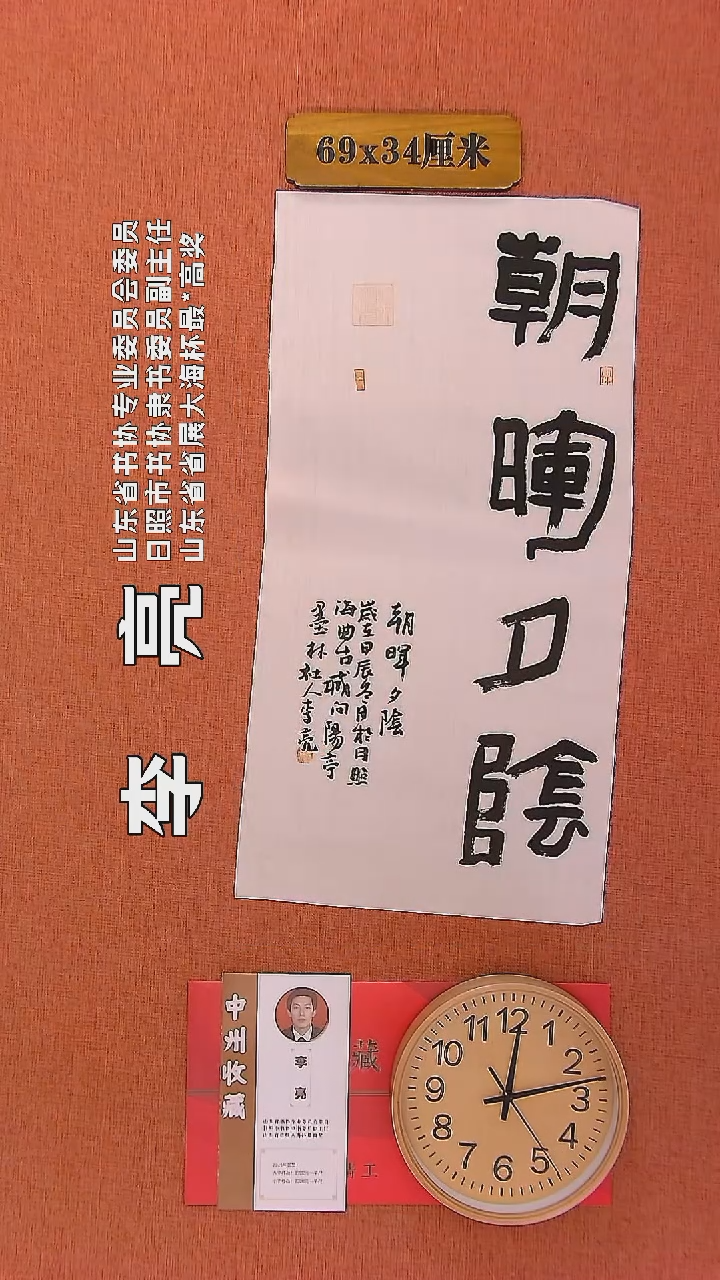 69x34厘米
朝暉夕陰
朝暉夕陰
歲在甲辰冬月於日照
海曲古城向陽亭
墨林社人李亮
李亮
山东省书协专业委员会委员
日照市书协隶书委员副主任
山东省省展大海杯最*高奖
中州收藏
李亮
藏
12
1
2
3
4
5
6
7
8
9
10
11